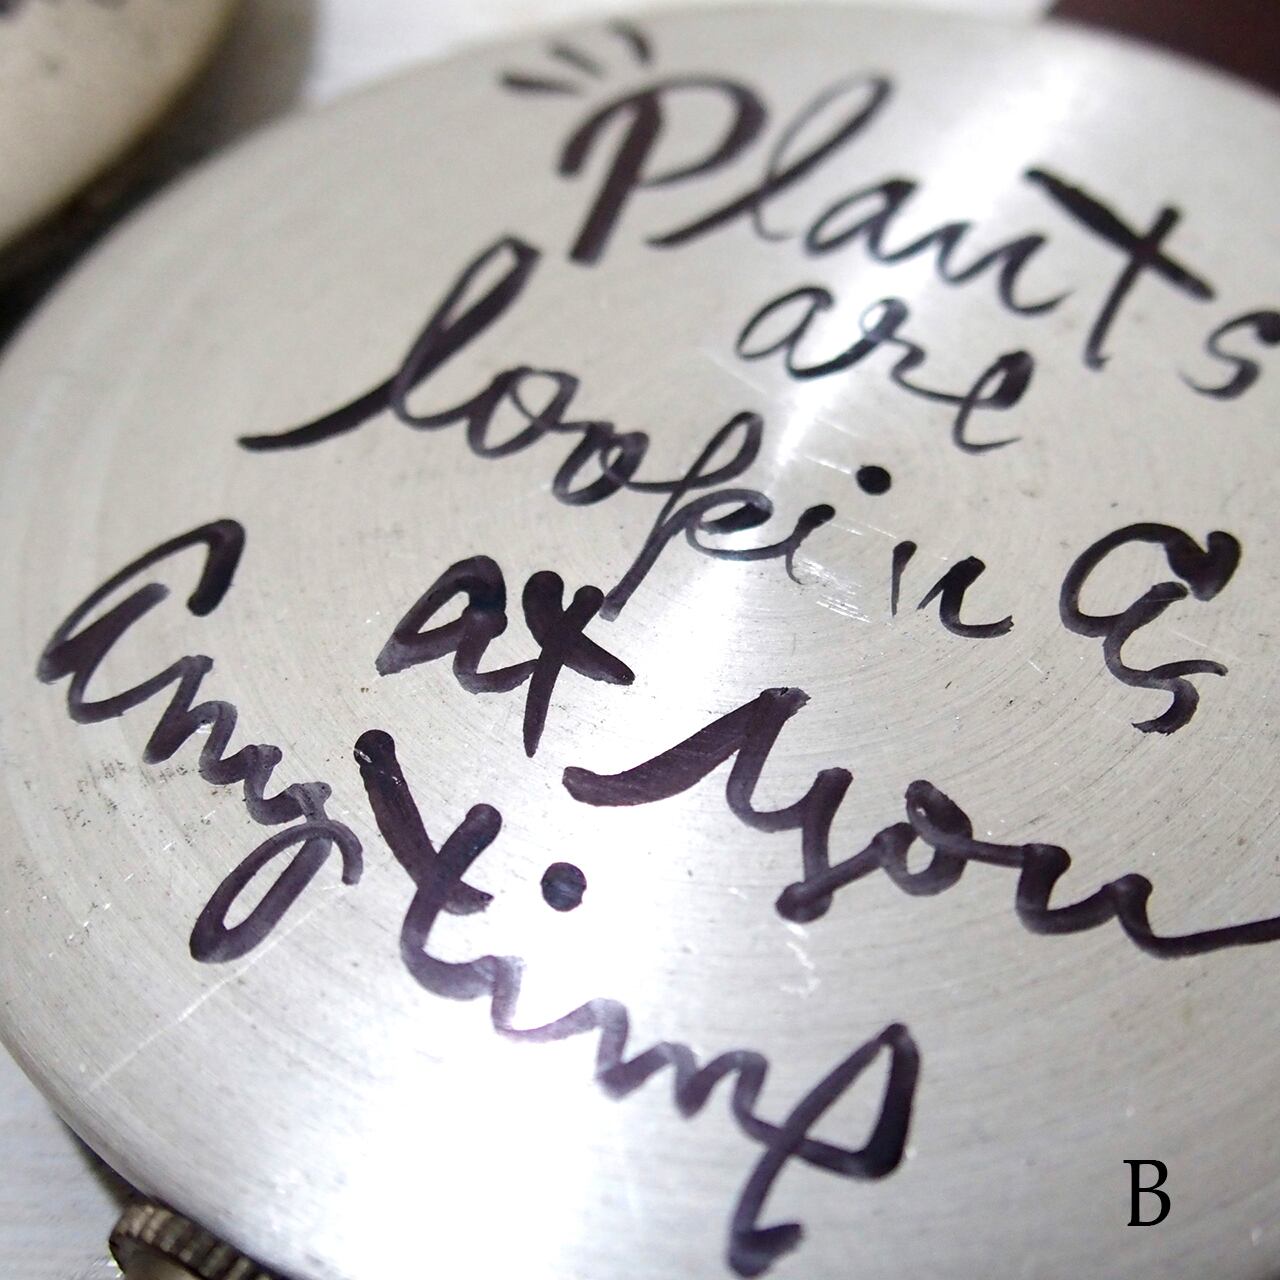 "Plants
are
looking
at you
Anytime
B